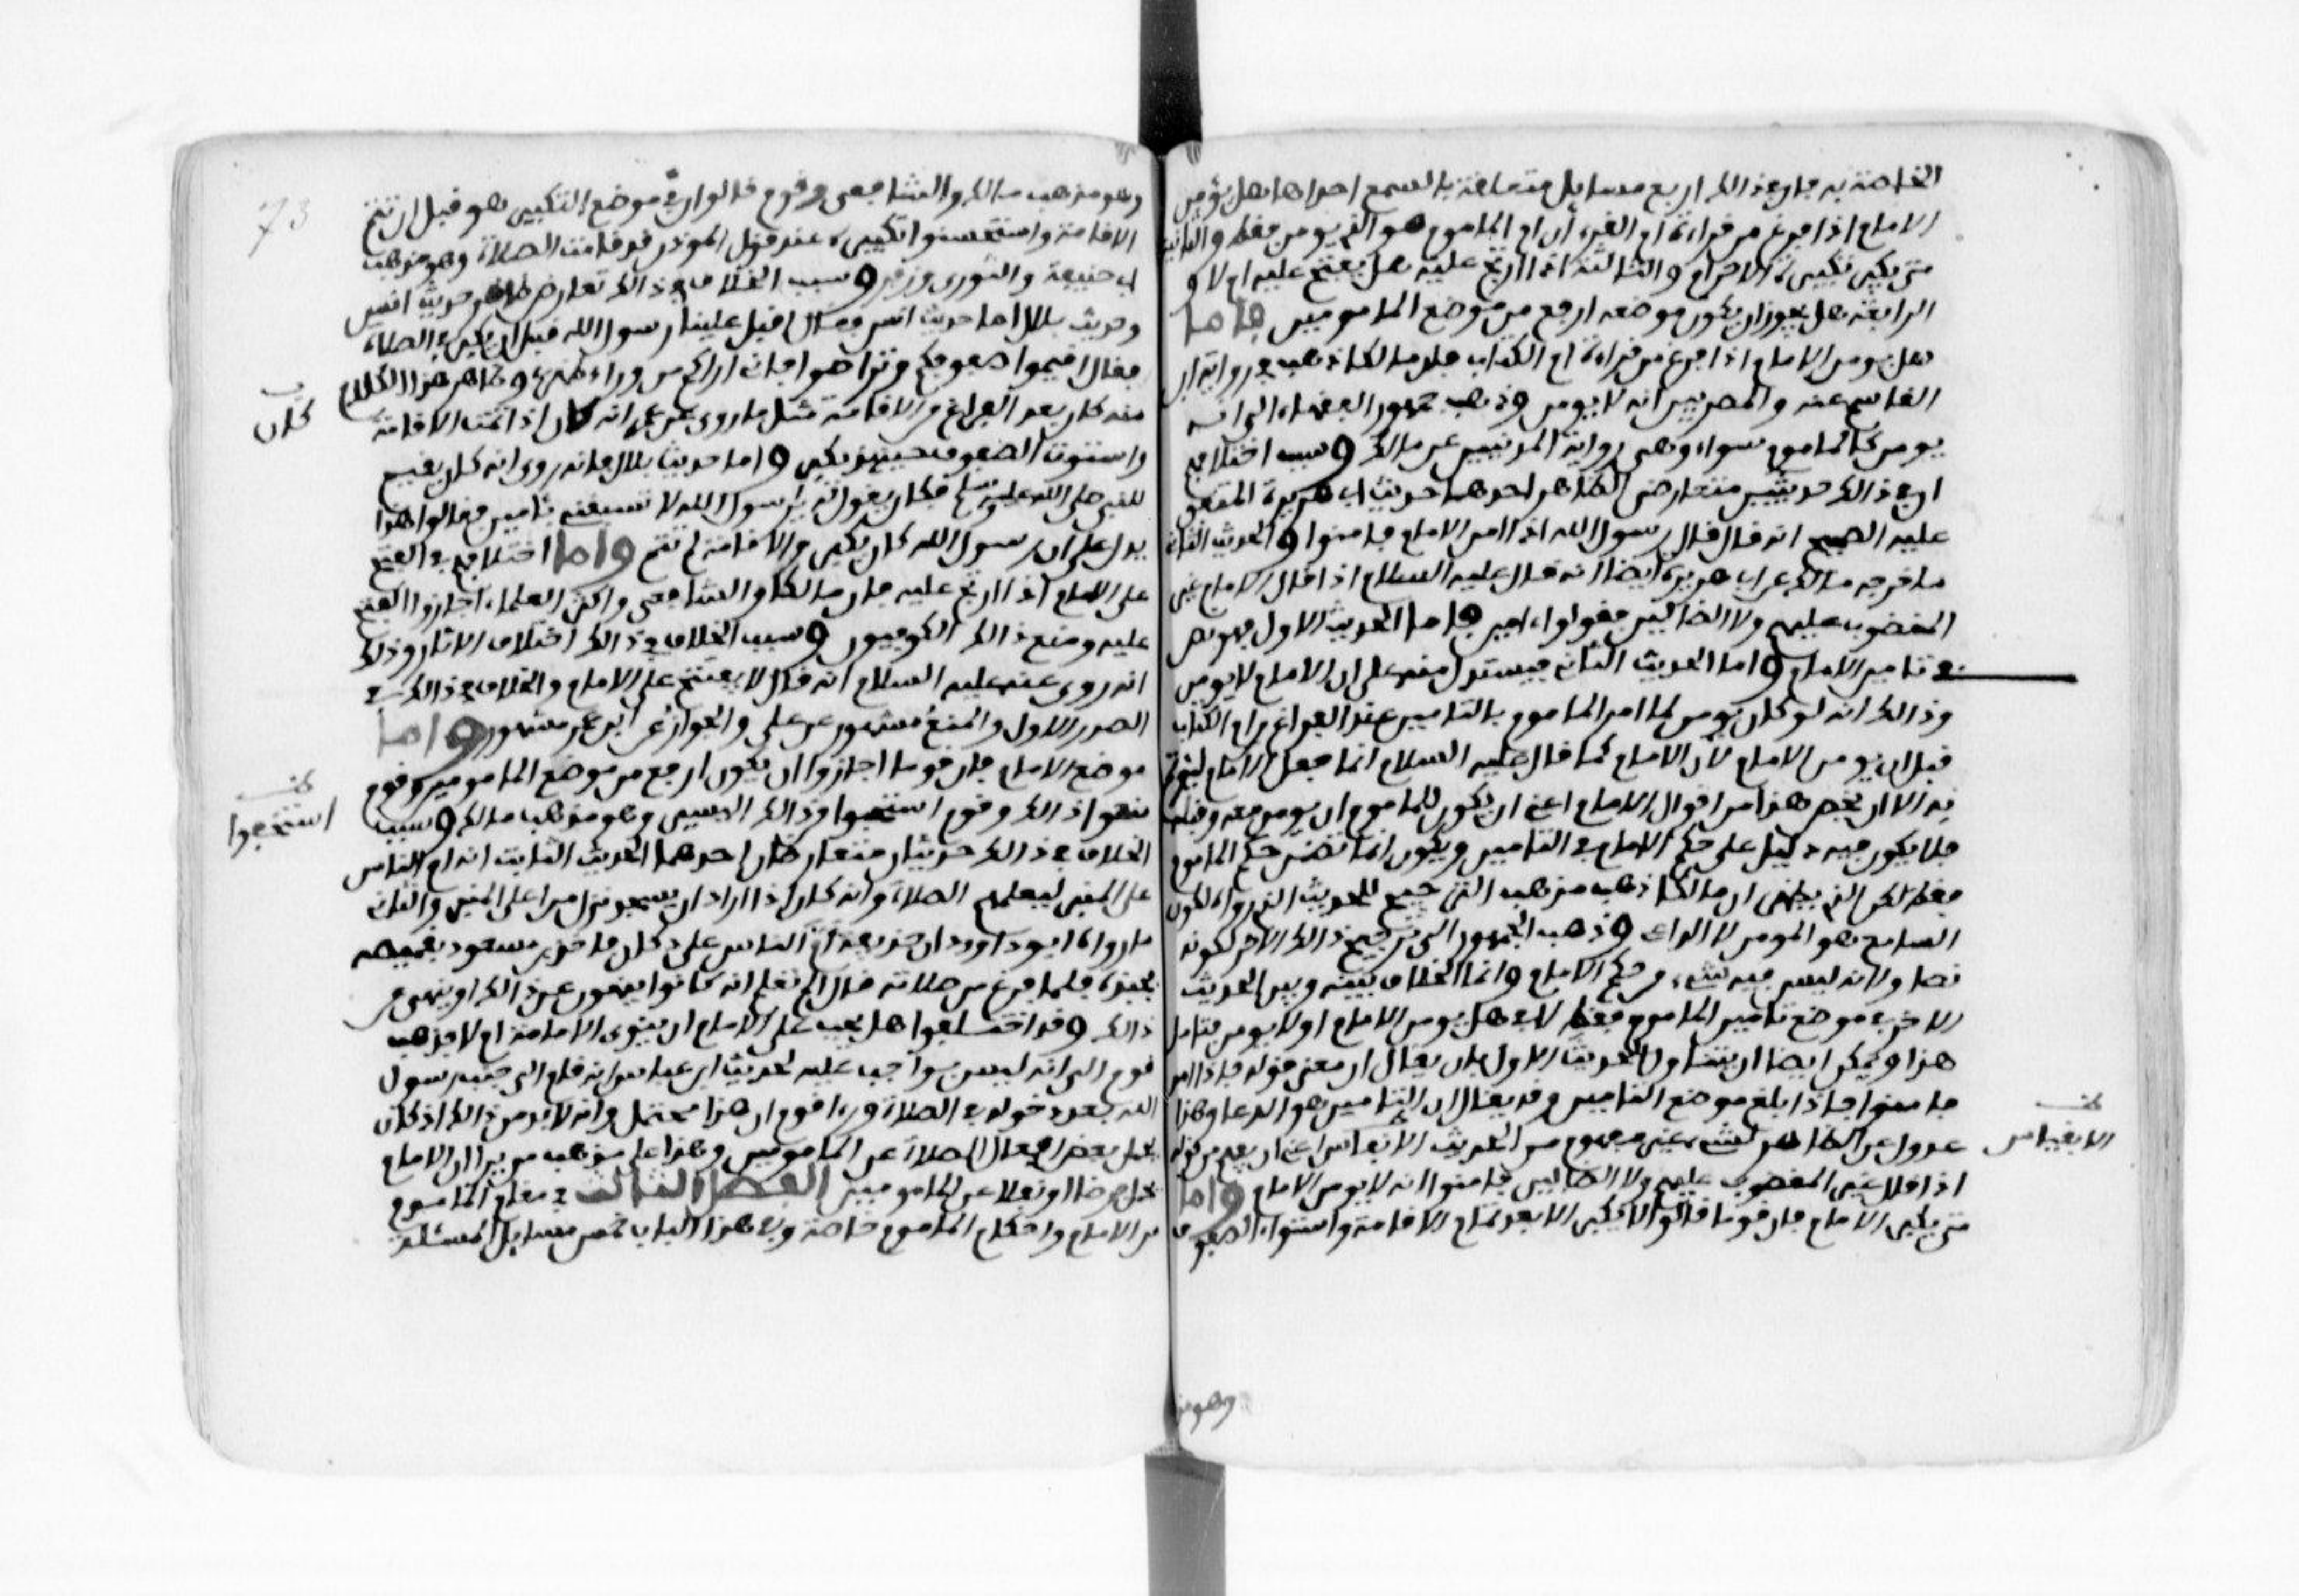 الخاصة به فان في ذالك اربع مسايل متعلقة بالسمع احداها هل يؤمن
الامام اذا فرغ من قراءة ام القرءان ام الماموم هو الذي يومن فقط والثانية
متى يكبر تكبيرة الاحرام والثالثة اذا ارتج عليه هل يفتح عليه ام لا و
الرابعة هل يجوز ان يكون موضعه ارفع من موضع المامومين فاما
هل يومن الامام اذا فرغ من قراءة ام الكتاب فان مالكا ذهب في رواية ابن
القاسم عنه والمصريين انه لا يومن وذهب جمهور الفقهاء الى انه
يومن كالماموم سواء وهي رواية المدنيين عن مالك وسبب اختلافهم
ان في ذالك حديثين متعارضي الظاهر احدهما حديث ابي هريرة المتفق
عليه الصحيح انه قال قال رسول الله اذا امن الامام فامنوا والحديث الثاني
ما خرجه مالك عن ابي هريرة ايضا انه قال عليه السلام اذا قال الامام غير
المغضوب عليهم ولا الضالين فقولوا ءامين فاما الحديث الاول فهو نص
في تامين الامام واما الحديث الثاني فيستدل منه على ان الامام لا يومن
وذالك انه لو كان يومن لما امر الماموم بالتامين عند الفراغ من ام الكتاب
قبل ان يومن الامام لان الامام كما قال عليه السلام انما جعل الامام ليوتم
به الا ان يخص هذا من اقوال الامام اعني ان يكون للماموم ان يومن معه وقبله
فلا يكون فيه دليل على حكم الامام في التامين ويكون انما تضمن حكم الماموم
فقط لكن الذي يظهر ان مالكا ذهب مذهب الترجيح للحديث الذي رواه لكون
السامع هو المومن لا الداعي وذهب الجمهور الى ترجيح ذالك الاخر لكونه
نصا ولانه ليس فيه شيء من حكم الامام وانما الخلاف بينه وبين الحديث
الاخر في موضع تامين الماموم فقط لا في هل يومن الامام او لا يومن فتامل
هذا ويمكن ايضا ان يتناول الحديث الاول بان يقال ان معنى قوله فاذا امن
فامنوا فاذا بلغ موضع التامين وقد يقال ان التامين هو الدعا وهذا
عدول عن الظاهر لشيء غير مفهوم من الحديث الا بقياس اعني ان يفهم من قوله
اذا قال غير المغضوب عليهم ولا الضالين فامنوا انه لا يومن الامام واما
متى يكبر الامام فان قوما قالوا لا يكبر الا بعد تمام الاقامة واستواء الصفوف
وهو مذ
الا بقياس
73
وهو مذهب مالك والشافعي وقوم قالوا ان موضع التكبير هو قبل ان تتم
الاقامة واستحسنوا تكبيره عند قول الموذن قد قامت الصلاة وهو مذهب
ابي حنيفة والثوري وزفر وسبب الخلاف في ذالك تعارض ظاهر حديث انس
وحديث بلال اما حديث انس فقال اقبل علينا رسول الله قبل ان يكبر في الصلاة
فقال اقيموا صفوفكم وتراصوا فاني اراكم من وراء ظهري وظاهر هذا الكلام
منه كان بعد الفراغ من الاقامة مثل ما روي عن عمر انه كان اذا تمت الاقامة
واستوت الصفوف حينيذ يكبر واما حديث بلال فانه روى انه كان يقيم
للنبي صلى الله عليه وسلم فكان يقول له يا رسول الله لا تسبقني بامين فقالوا هذا
يدل على ان رسول الله كان يكبر والاقامة لم تتم واما اختلافهم في الفتح
على الامام اذا ارتج عليه فان مالكا والشافعي واكثر العلماء اجازوا الفتح
عليه ومنع ذالك الكوفيون وسبب الخلاف في ذالك اختلاف الاثار وذلك
انه روي عنه عليه السلام انه قال لا يفتح على الامام والخلاف في ذالك في
الصدر الاول والمنع مشهور عن علي والجواز عن ابن عمر مشهور واما
موضع الامام فان قوما اجازوا ان يكون ارفع من موضع المامومين وقوم
منعوا ذالك وقوم استحبوا من ذالك اليسير وهو مذهب مالك وسبب
الخلاف في ذالك حديثان متعارضان احدهما الحديث الثابت انه ام الناس
على المنبر ليعلمهم الصلاة وانه كان اذا اراد ان يسجد نزل من اعلى المنبر والثاني
ما رواه ابو داوود ان حذيفة ام الناس على دكان فاخذ ابو مسعود بقميصه
فجبذه فلما فرغ من صلاته قال الم تعلم انه كانوا ينهون عن ذالك او ينهى عن
ذالك وقد اختلفوا هل يجب على الامام ان ينوي الامامة ام لا فذهب
قوم الى انه ليس بواجب عليه لحديث ابن عباس انه قام الى جنب رسول
الله بعد دخوله في الصلاة وراى قوم ان هذا محتمل وانه لابد من ذالك اذ كان
يحمل بعض افعال الصلاة عن المامومين وهذا على مذهب من يرى ان الامام
يحمل فرضا او نفلا عن المامومين الفصل الثالث في مقام الماموم
من الامام واحكام الماموم خاصة وفي هذا الباب خمس مسايل المسئلة
كان
استحبوا